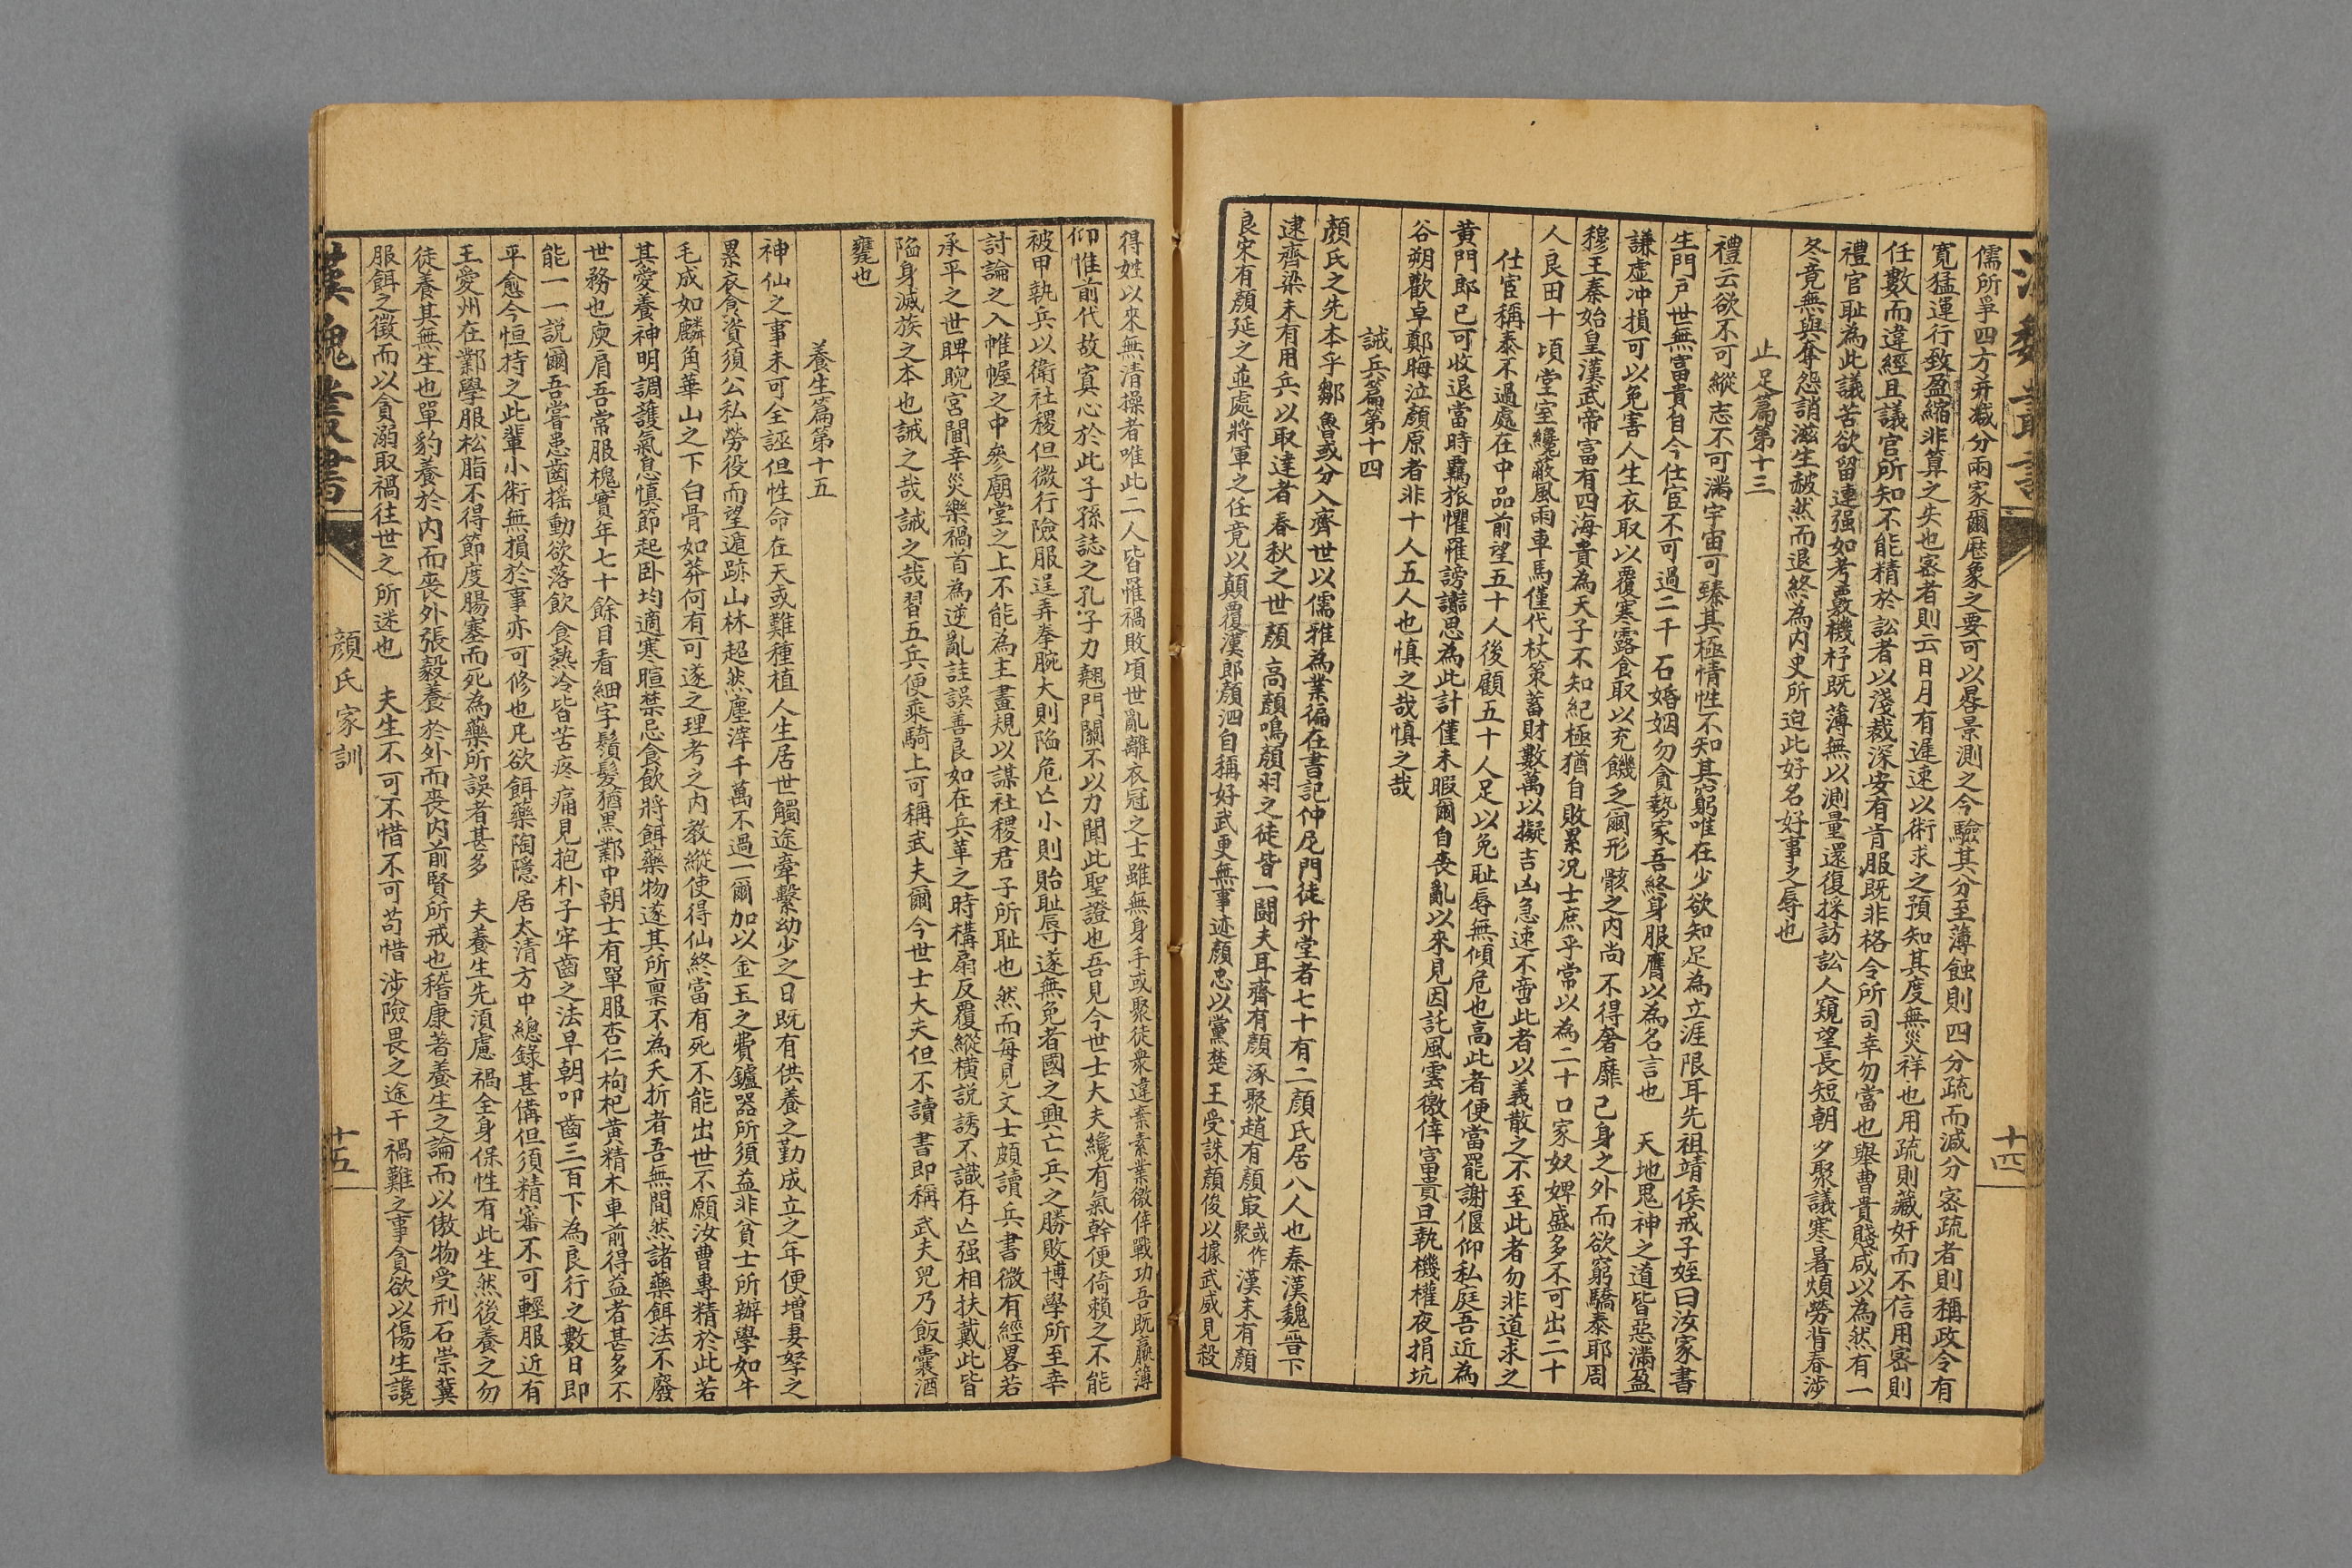 儒所爭四方并減分兩家爾歷象之要可以晷景測之今驗其分至薄蝕則四分疏而減分密疏者則稱政令有
寬猛運行致盈縮非算之失也密者則云日月有遲速以術求之預知其度無災祥也用疏則藏奸而不信用密則
任數而違經且議官所知不能精於訟者以淺裁深安有肯服既非格令所司幸勿當也舉曹貴賤咸以為然有一
禮官恥為此議苦欲留連强加考覈機杼既薄無以測量還復採訪訟人窺望長短朝夕聚議寒暑煩勞背春涉
冬竟無與奪怨誚滋生赧然而退終為內史所迫此好名好事之辱也
止足篇第十三
禮云欲不可縱志不可滿宇宙可臻其極情性不知其窮唯在少欲知足為立涯限耳先祖靖侯戒子姪曰汝家書
生門戸世無富貴自今仕宦不可過二千石婚姻勿貪勢家吾終身服膺以為名言也　天地鬼神之道皆惡滿盈
謙虛冲損可以免害人生衣取以覆寒露食取以充饑乏爾形骸之內尚不得奢靡己身之外而欲窮驕泰耶周
穆王秦始皇漢武帝富有四海貴為天子不知紀極猶自敗累况士庶乎常以為二十口家奴婢盛多不可出二十
人良田十頃堂室纔蔽風雨車馬僅代杖策蓄財數萬以擬吉凶急速不啻此者以義散之不至此者勿非道求之
仕宦稱泰不過處在中品前望五十人後顧五十人足以免恥辱無傾危也高此者便當罷謝偃仰私庭吾近為
黄門郎已可收退當時羈旅懼罹謗讟思為此計僅未暇爾自喪亂以來見因託風雲徼倖富貴旦執機權夜捐坑
谷朔歡卓鄭晦泣顏原者非十人五人也慎之哉慎之哉
誡兵篇第十四
顏氏之先本乎鄒魯或分入齊世以儒雅為業徧在書記仲尼門徒升堂者七十有二顏氏居八人也秦漢魏晉下
逮齊梁未有用兵以取達者春秋之世顏高顏鳴顏羽之徒皆一鬭夫耳齊有顏涿聚趙有顏㝡或作聚漢末有顏
良宋有顏延之並處將軍之任竟以顛覆漢郎顏泗自稱好武更無事迹顏忠以黨楚王受誅顏俊以據武威見殺
十四
得姓以來無清操者唯此二人皆罹禍敗頃世亂離衣冠之士雖無身手或聚徒衆違棄素業徼倖戰功吾既羸薄
仰惟前代故寘心於此子孫誌之孔子力翹門關不以力聞此聖證也吾見今世士大夫纔有氣幹便倚賴之不能
被甲執兵以衛社稷但微行險服逞弄拳腕大則陷危亡小則貽恥辱遂無免者國之興亡兵之勝敗博學所至幸
討論之入帷幄之中參廟堂之上不能為主畫規以謀社稷君子所恥也然而每見文士頗讀兵書微有經畧若
承平之世睥睨宮閫幸災樂禍首為逆亂詿誤善良如在兵革之時構扇反覆縱橫説誘不識存亡强相扶戴此皆
陷身滅族之本也誡之哉誡之哉習五兵便乘騎上可稱武夫爾今世士大夫但不讀書即稱武夫兒乃飯囊酒
甕也
養生篇第十五
神仙之事未可全誣但性命在天或難種植人生居世觸途牽縶幼少之日既有供養之勤成立之年便增妻孥之
累衣食資須公私勞役而望遁跡山林超然塵滓千萬不過一爾加以金玉之費鑪器所須益非貧士所辦學如牛
毛成如麟角華山之下白骨如莽何有可遂之理考之內教縱使得仙終當有死不能出世不願汝曹專精於此若
其愛養神明調護氣息慎節起卧均適寒暄禁忌食飲將餌藥物遂其所稟不為夭折者吾無間然諸藥餌法不廢
世務也庾肩吾常服槐實年七十餘目看細字鬚髮猶黑鄴中朝士有單服杏仁枸杞黄精木車前得益者甚多不
能一一説爾吾嘗患齒摇動欲落飲食熱冷皆苦疼痛見抱朴子牢齒之法早朝叩齒三百下為良行之數日即
平愈今恒持之此輩小術無損於事亦可修也凡欲餌藥陶隱居太清方中總錄甚備但須精審不可輕服近有
王愛州在鄴學服松脂不得節度腸塞而死為藥所誤者甚多　夫養生先須慮禍全身保性有此生然後養之勿
徒養其無生也單豹養於內而喪外張毅養於外而喪內前賢所戒也嵇康著養生之論而以傲物受刑石崇冀
服餌之徵而以貪溺取禍往世之所迷也　夫生不可不惜不可苟惜涉險畏之途干禍難之事貪欲以傷生讒
漢魏叢書
顔氏家訓
十五